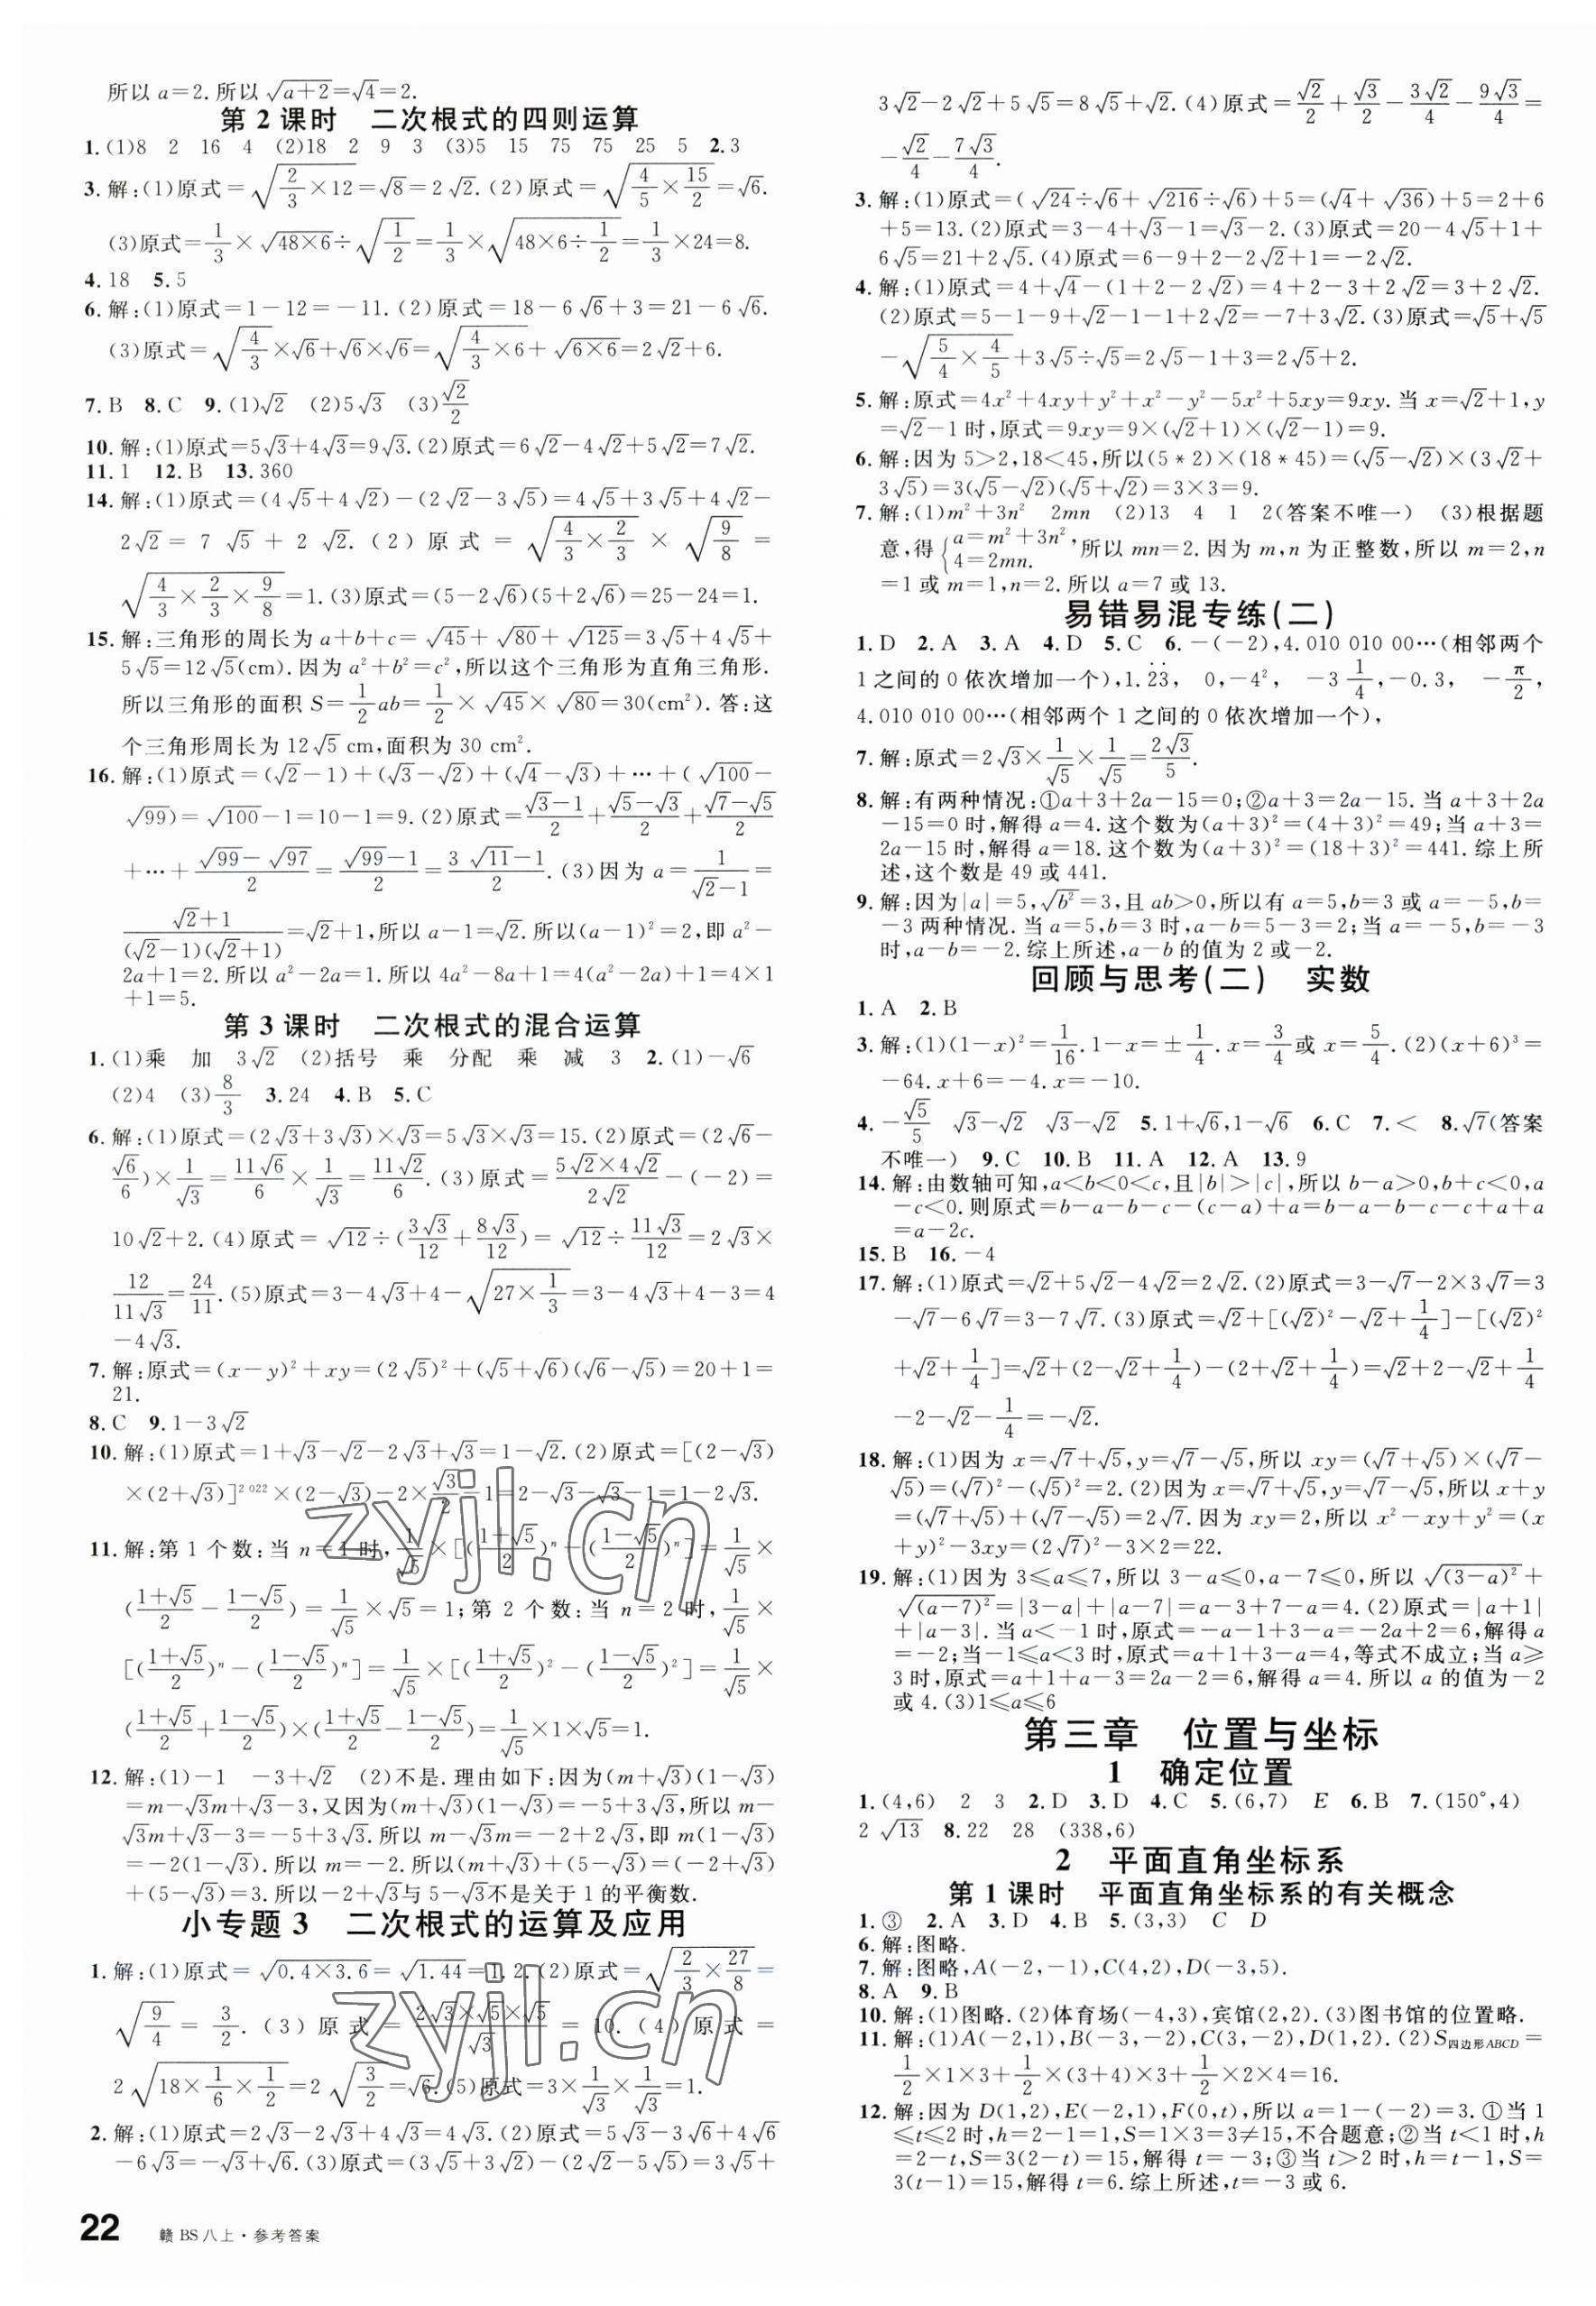 所以 a=2.所以 √(a+2)=√4=2.
第 2 课时　二次根式的四则运算
1.(1)8　2　16　4　(2)18　2　9　3　(3)5　15　75　75　25　5　2.3
3.解:(1)原式=√(2/3×12)=√8=2√2.(2)原式=√(4/5×15/2)=√6.
(3)原式=1/3×√(48×6)÷√(1/2)=1/3×√(48×6÷1/2)=1/3×24=8.
4.18　5.5
6.解:(1)原式=1-12=-11.(2)原式=18-6√6+3=21-6√6.
(3)原式=√(4/3)×√6+√6×√6=√(4/3×6)+√(6×6)=2√2+6.
7.B　8.C　9.(1)√2　(2)5√3　(3)√2/2
10.解:(1)原式=5√3+4√3=9√3.(2)原式=6√2-4√2+5√2=7√2.
11.1　12.B　13.360
14.解:(1)原式=(4√5+4√2)-(2√2-3√5)=4√5+3√5+4√2-
2√2=7√5+2√2.(2)原式=√(4/3×2/3)×√(9/8)=
√(4/3×2/3×9/8)=1.(3)原式=(5-2√6)(5+2√6)=25-24=1.
15.解:三角形的周长为 a+b+c=√45+√80+√125=3√5+4√5+
5√5=12√5(cm).因为 a²+b²=c²,所以这个三角形为直角三角形.
所以三角形的面积 S=1/2ab=1/2×√45×√80=30(cm²).答:这
个三角形周长为 12√5 cm,面积为 30 cm².
16.解:(1)原式=(√2-1)+(√3-√2)+(√4-√3)+…+(√100-
√99)=√100-1=10-1=9.(2)原式=(√3-1)/2+(√5-√3)/2+(√7-√5)/2
+…+(√99-√97)/2=(√99-1)/2=(3√11-1)/2.(3)因为 a=1/(√2-1)=
(√2+1)/((√2-1)(√2+1))=√2+1,所以 a-1=√2.所以(a-1)²=2,即 a²-
2a+1=2.所以 a²-2a=1.所以 4a²-8a+1=4(a²-2a)+1=4×1
+1=5.
第 3 课时　二次根式的混合运算
1.(1)乘　加　3√2　(2)括号　乘　分配　乘　减　3　2.(1)-√6
(2)4　(3)8/3　3.24　4.B　5.C
6.解:(1)原式=(2√3+3√3)×√3=5√3×√3=15.(2)原式=(2√6-
√6/6)×1/√3=11√6/6×1/√3=11√2/6.(3)原式=(5√2×4√2)/(2√2)-(-2)=
10√2+2.(4)原式=√12÷(3√3/12+8√3/12)=√12÷11√3/12=2√3×
12/(11√3)=24/11.(5)原式=3-4√3+4-√(27×1/3)=3-4√3+4-3=4
-4√3.
7.解:原式=(x-y)²+xy=(2√5)²+(√5+√6)(√6-√5)=20+1=
21.
8.C　9.1-3√2
10.解:(1)原式=1+√3-√2-2√3+√3=1-√2.(2)原式=[(2-√3)
×(2+√3)]²⁰²²×(2-√3)-2×√3/2-1=2-√3-√3-1=1-2√3.
11.解:第 1 个数:当 n=1 时,1/√5×[((1+√5)/2)ⁿ-((1-√5)/2)ⁿ]=1/√5×
((1+√5)/2-(1-√5)/2)=1/√5×√5=1;第 2 个数:当 n=2 时,1/√5×
[((1+√5)/2)ⁿ-((1-√5)/2)ⁿ]=1/√5×[((1+√5)/2)²-((1-√5)/2)²]=1/√5×
((1+√5)/2+(1-√5)/2)×((1+√5)/2-(1-√5)/2)=1/√5×1×√5=1.
12.解:(1)-1　-3+√2　(2)不是.理由如下:因为(m+√3)(1-√3)
=m-√3m+√3-3,又因为(m+√3)(1-√3)=-5+3√3,所以 m-
√3m+√3-3=-5+3√3.所以 m-√3m=-2+2√3,即 m(1-√3)
=-2(1-√3).所以 m=-2.所以(m+√3)+(5-√3)=(-2+√3)
+(5-√3)=3.所以-2+√3与 5-√3不是关于 1 的平衡数.
小专题 3　二次根式的运算及应用
1.解:(1)原式=√(0.4×3.6)=√1.44=1.2.(2)原式=√(2/3×27/8)=
√(9/4)=3/2.(3)原式=(2√3×√5×√5)/√3=10.(4)原式=
2√(18×1/6×1/2)=2√(3/2)=√6.(5)原式=3×1/√3×1/√3=1.
2.解:(1)原式=2√3-2√3+4√3=4√3.(2)原式=5√3-3√6+4√6
-6√3=-√3+√6.(3)原式=(3√5+3√2)-(2√2-5√5)=3√5+
22　赣 BS 八上·参考答案
3√2-2√2+5√5=8√5+√2.(4)原式=√2/2+√3/2-3√2/4-9√3/4=
-√2/4-7√3/4.
3.解:(1)原式=(√24÷√6+√216÷√6)+5=(√4+√36)+5=2+6
+5=13.(2)原式=3-4+√3-1=√3-2.(3)原式=20-4√5+1+
6√5=21+2√5.(4)原式=6-9+2-2√2+1=-2√2.
4.解:(1)原式=4+√4-(1+2-2√2)=4+2-3+2√2=3+2√2.
(2)原式=5-1-9+√2-1-1+2√2=-7+3√2.(3)原式=√5+√5
-√(5/4×4/5)+3√5÷√5=2√5-1+3=2√5+2.
5.解:原式=4x²+4xy+y²+x²-y²-5x²+5xy=9xy.当 x=√2+1,y
=√2-1 时,原式=9xy=9×(√2+1)×(√2-1)=9.
6.解:因为 5>2,18<45,所以(5*2)×(18*45)=(√5-√2)×(3√2+
3√5)=3(√5-√2)(√5+√2)=3×3=9.
7.解:(1)m²+3n²　2mn　(2)13　4　1　2(答案不唯一)　(3)根据题
意,得{a=m²+3n², 4=2mn. 所以 mn=2.因为 m,n 为正整数,所以 m=2,n
=1 或 m=1,n=2.所以 a=7 或 13.
易错易混专练(二)
1.D　2.A　3.A　4.D　5.C　6.-(-2),4.010 010 00…(相邻两个
1 之间的 0 依次增加一个),1.2̇3̇,　0,-4²,　-3 1/4,-0.3,　-π/2,
4.010 010 00…(相邻两个 1 之间的 0 依次增加一个),
7.解:原式=2√3×1/√5×1/√5=2√3/5.
8.解:有两种情况:①a+3+2a-15=0;②a+3=2a-15.当 a+3+2a
-15=0 时,解得 a=4.这个数为(a+3)²=(4+3)²=49;当 a+3=
2a-15 时,解得 a=18.这个数为(a+3)²=(18+3)²=441.综上所
述,这个数是 49 或 441.
9.解:因为|a|=5,√b²=3,且 ab>0,所以有 a=5,b=3 或 a=-5,b=
-3 两种情况.当 a=5,b=3 时,a-b=5-3=2;当 a=-5,b=-3
时,a-b=-2.综上所述,a-b 的值为 2 或-2.
回顾与思考(二)　实数
1.A　2.B
3.解:(1)(1-x)²=1/16.1-x=±1/4.x=3/4或 x=5/4.(2)(x+6)³=
-64.x+6=-4.x=-10.
4.-√5/5　√3-√2　√3-√2　5.1+√6,1-√6　6.C　7.<　8.√7(答案
不唯一)　9.C　10.B　11.A　12.A　13.9
14.解:由数轴可知,a<b<0<c,且|b|>|c|,所以 b-a>0,b+c<0,a
-c<0.则原式=b-a-b-c-(c-a)+a=b-a-b-c-c+a+a
=a-2c.
15.B　16.-4
17.解:(1)原式=√2+5√2-4√2=2√2.(2)原式=3-√7-2×3√7=3
-√7-6√7=3-7√7.(3)原式=√2+[(√2)²-√2+1/4]-[(√2)²
+√2+1/4]=√2+(2-√2+1/4)-(2+√2+1/4)=√2+2-√2+1/4
-2-√2-1/4=-√2.
18.解:(1)因为 x=√7+√5,y=√7-√5,所以 xy=(√7+√5)×(√7-
√5)=(√7)²-(√5)²=2.(2)因为 x=√7+√5,y=√7-√5,所以 x+y
=(√7+√5)+(√7-√5)=2√7.因为 xy=2,所以 x²-xy+y²=(x
+y)²-3xy=(2√7)²-3×2=22.
19.解:(1)因为 3≤a≤7,所以 3-a≤0,a-7≤0,所以 √(3-a)²+
√(a-7)²=|3-a|+|a-7|=a-3+7-a=4.(2)原式=|a+1|
+|a-3|.当 a<-1 时,原式=-a-1+3-a=-2a+2=6,解得 a
=-2;当-1≤a<3 时,原式=a+1+3-a=4,等式不成立;当 a≥
3 时,原式=a+1+a-3=2a-2=6,解得 a=4.所以 a 的值为-2
或 4.(3)1≤a≤6
第三章　位置与坐标
1　确定位置
1.(4,6)　2　3　2.D　3.D　4.C　5.(6,7)　E　6.B　7.(150°,4)
2√13　8.22　28　(338,6)
2　平面直角坐标系
第 1 课时　平面直角坐标系的有关概念
1.③　2.A　3.D　4.B　5.(3,3)　C　D
6.解:图略.
7.解:图略,A(-2,-1),C(4,2),D(-3,5).
8.A　9.B
10.解:(1)图略.(2)体育场(-4,3),宾馆(2,2).(3)图书馆的位置略.
11.解:(1)A(-2,1),B(-3,-2),C(3,-2),D(1,2).(2)S四边形ABCD=
1/2×1×3+1/2×(3+4)×3+1/2×2×4=16.
12.解:因为 D(1,2),E(-2,1),F(0,t),所以 a=1-(-2)=3.①当 1
≤t≤2 时,h=2-1=1,S=1×3=3≠15,不合题意;②当 t<1 时,h
=2-t,S=3(2-t)=15,解得 t=-3;③当 t>2 时,h=t-1,S=
3(t-1)=15,解得 t=6.综上所述,t=-3 或 6.
zyjl.cn
zyjl.cn